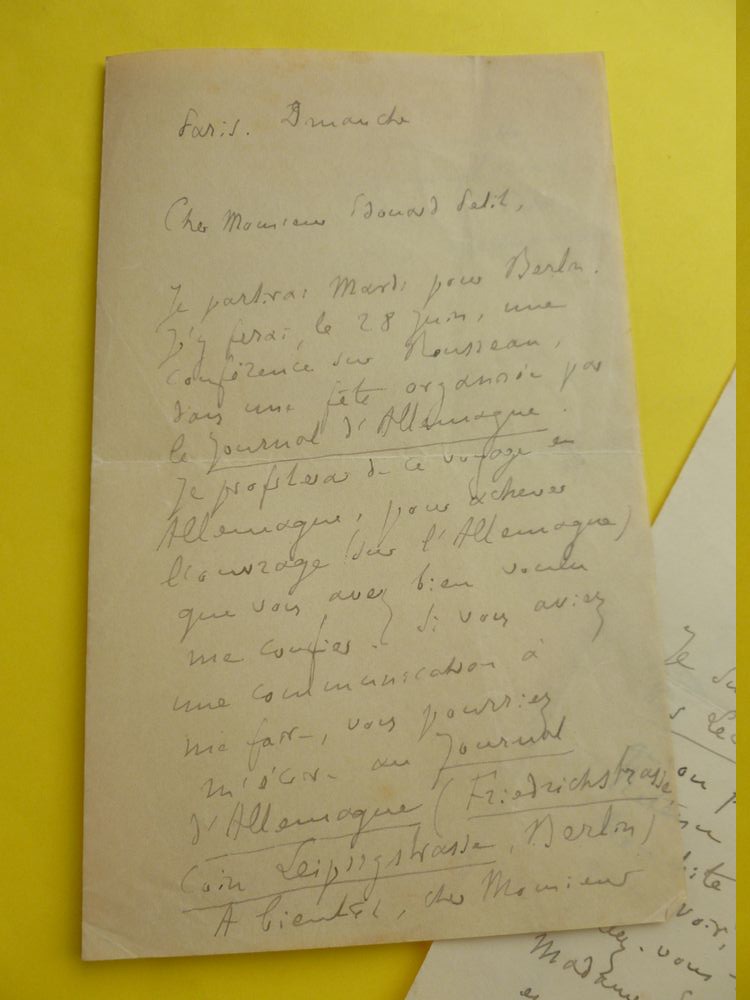 Paris. Dimanche
Cher Monsieur Edouard Petit,
Je partirai Mardi pour Berlin.
J'y ferai, le 28 Juin, une
conférence sur Rousseau,
dans une fête organisée par
le Journal d'Allemagne.
Je profiterai de ce voyage en
Allemagne, pour achever
l'ouvrage (sur l'Allemagne)
que vous avez bien voulu
me confier. Si vous aviez
une communication à
me faire, vous pourriez
m'écrire au Journal
d'Allemagne (Friedrichstrasse,
Coin Leipzigstrasse, Berlin)
A bientôt, cher Monsieur
Je
on
voir,
vous
Madame